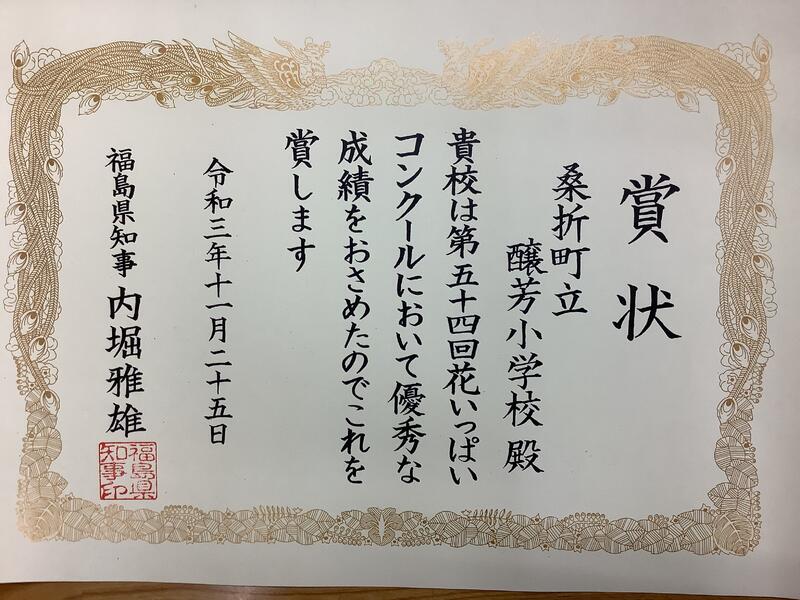 賞状
桑折町立
醸芳小学校 殿
貴校は第五十四回花いっぱい
コンクールにおいて優秀な
成績をおさめたのでこれを
賞します
令和三年十一月二十五日
福島県知事 内堀雅雄
福島県
知事印